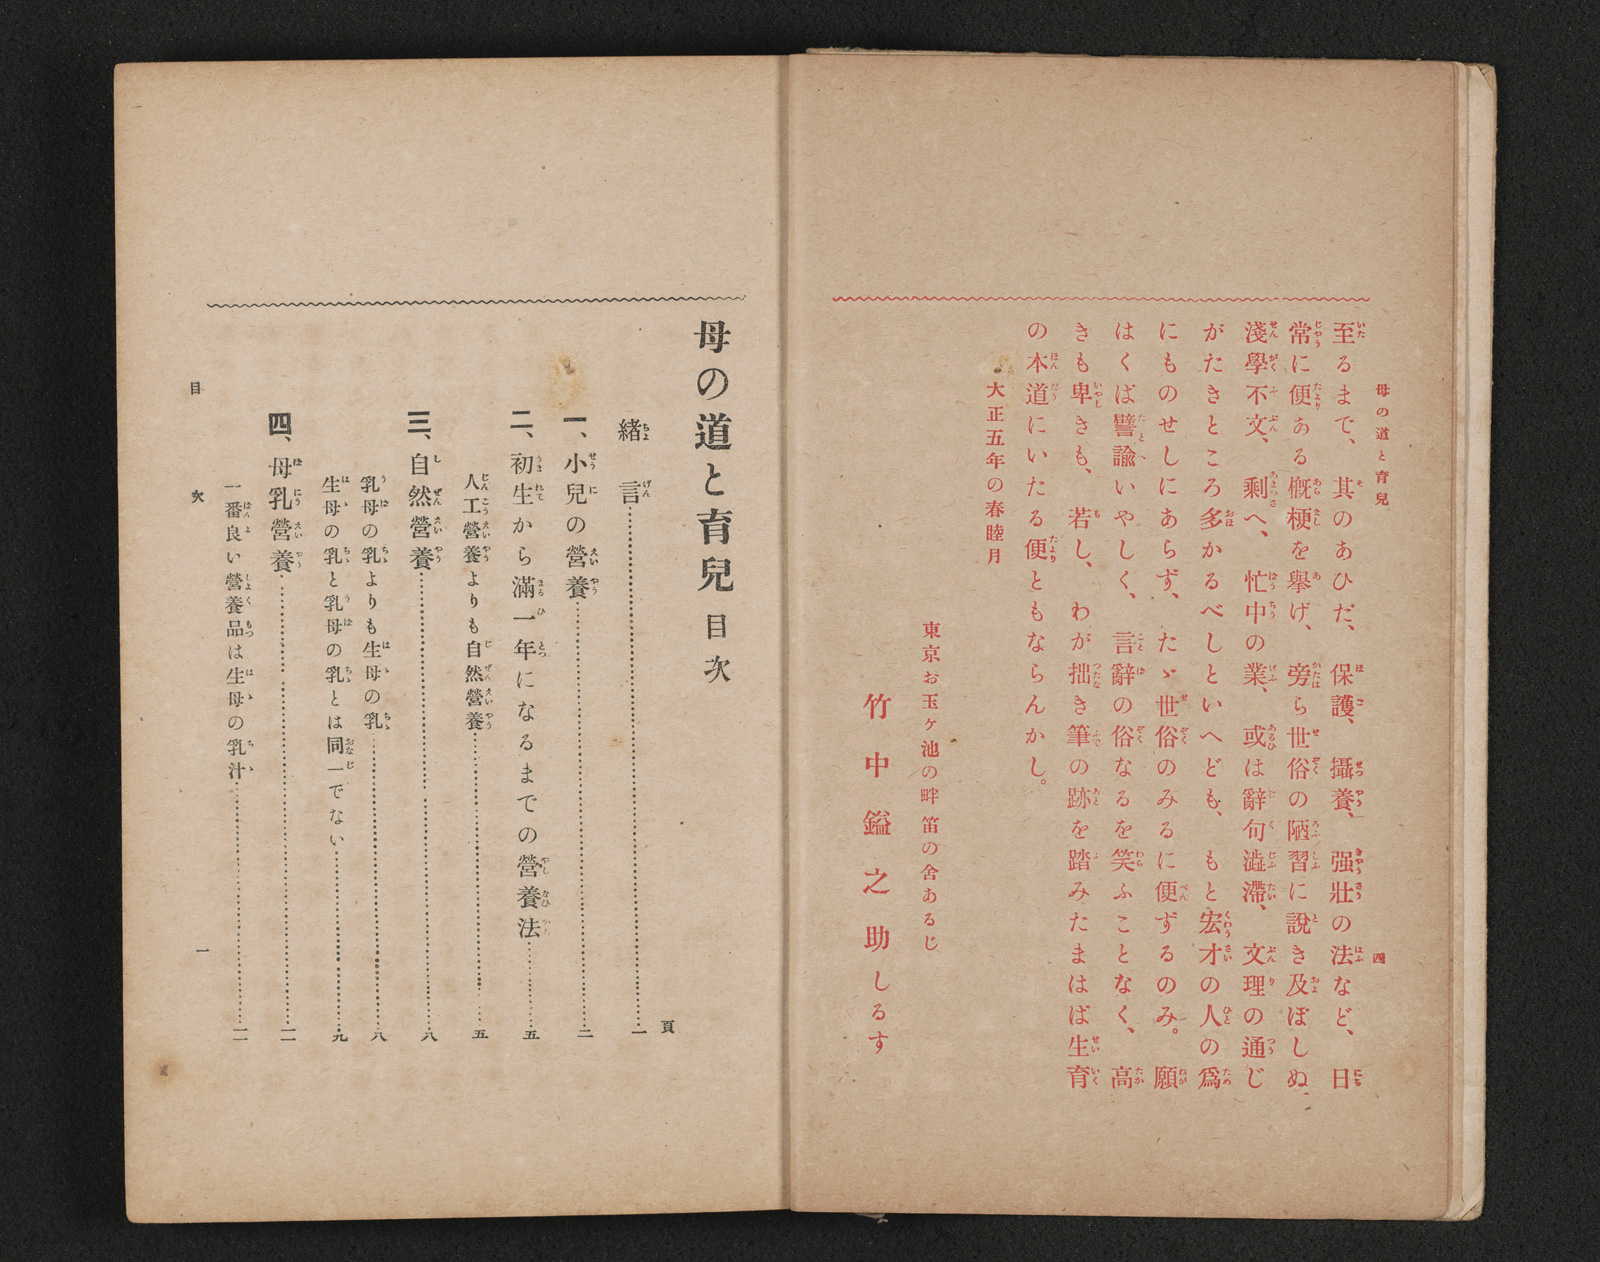 母の道と育兒
四
至るまで、其のあひだ、保護、攝養、强壯の法など、日
常に便ある槪梗を擧げ、旁ら世俗の陋習に說き及ぼしぬ、
淺學不文、剩へ、忙中の業、或は辭句澁滯、文理の通じ
がたきところ多かるべしといへども、もと宏才の人の爲
にものせしにあらず、たゞ世俗のみるに便ずるのみ。願
はくば譬諭いやしく、言辭の俗なるを笑ふことなく、高
きも卑きも、若し、わが拙き筆の跡を踏みたまはば生育
の本道にいたる便ともならんかし。
大正五年の春睦月
東京お玉ヶ池の畔笛の舍あるじ
竹中鎰之助しるす
母の道と育兒目次
頁
緖言……一
一、小兒の營養……二
二、初生から滿一年になるまでの營養法……五
人工營養よりも自然營養……五
三、自然營養……八
乳母の乳よりも生母の乳……八
生母の乳と乳母の乳とは同一でない……九
四、母乳營養……一一
一番良い營養品は生母の乳汁……一一
目次
一